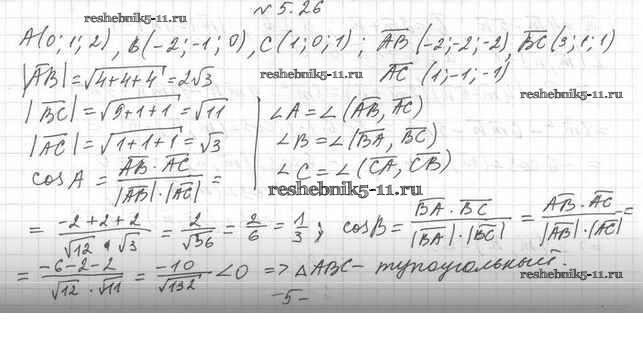 № 5.26
reshebnik5-11.ru
A(0; 1; 2), B(-2; -1; 0), C(1; 0; 1); AB̅ (-2; -2; -2), BC̅ (3; 1; 1)
|AB̅| = √4+4+4 = 2√3 reshebnik5-11.ru AC̅ (1; -1; -1)
reshebnik5-11.ru
|BC̅| = √9+1+1 = √11 ∠A = ∠(AB̅, AC̅)
|AC̅| = √1+1+1 = √3 ∠B = ∠(BA̅, BC̅)
cos A = AB̅ · AC̅ / |AB̅| · |AC̅| = ∠C = ∠(CA̅, CB̅)
reshebnik5-11.ru
= -2+2+2 / √12 · √3 = 2/√36 = 2/6 = 1/3; cos B = BA̅ · BC̅ / |BA̅| · |BC̅| = AB̅ · AC̅ / |AB̅| · |AC̅| =
= -6-2-2 / √12 · √11 = -10/√132 < 0 => △ABC - тупоугольный.
reshebnik5-11.ru
-5-